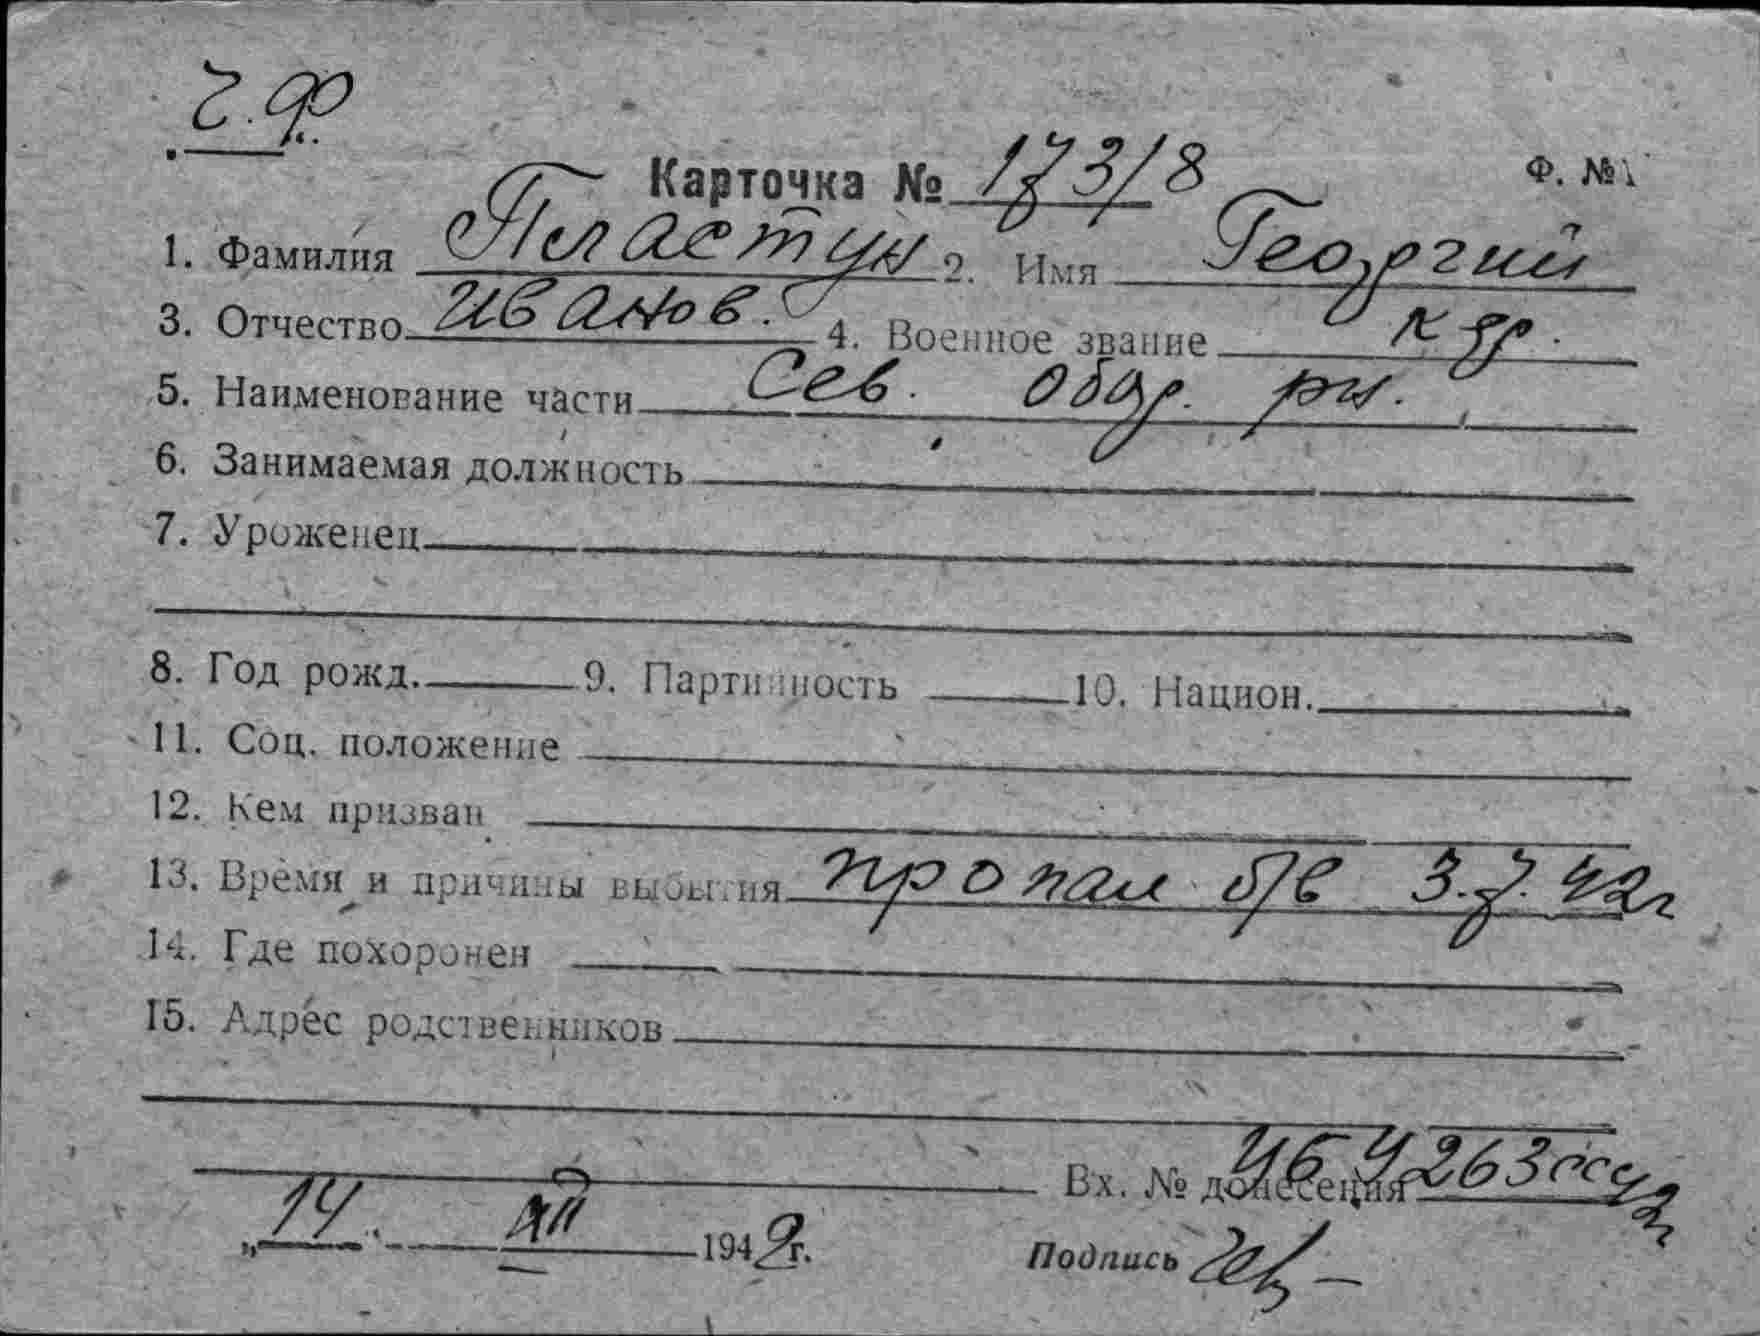 Ч.Ф.
Карточка № 173/8 Ф. №1
1. Фамилия Пластун 2. Имя Георгий
3. Отчество Иванов. 4. Военное звание кр.
5. Наименование части Сев. обор. рн.
6. Занимаемая должность
7. Уроженец
8. Год рожд. 9. Партийность 10. Национ.
11. Соц. положение
12. Кем призван
13. Время и причины выбытия пропал б/в 3.7.42г
14. Где похоронен
15. Адрес родственников
Вх. № донесения
„14 XII 1949г. Подпись